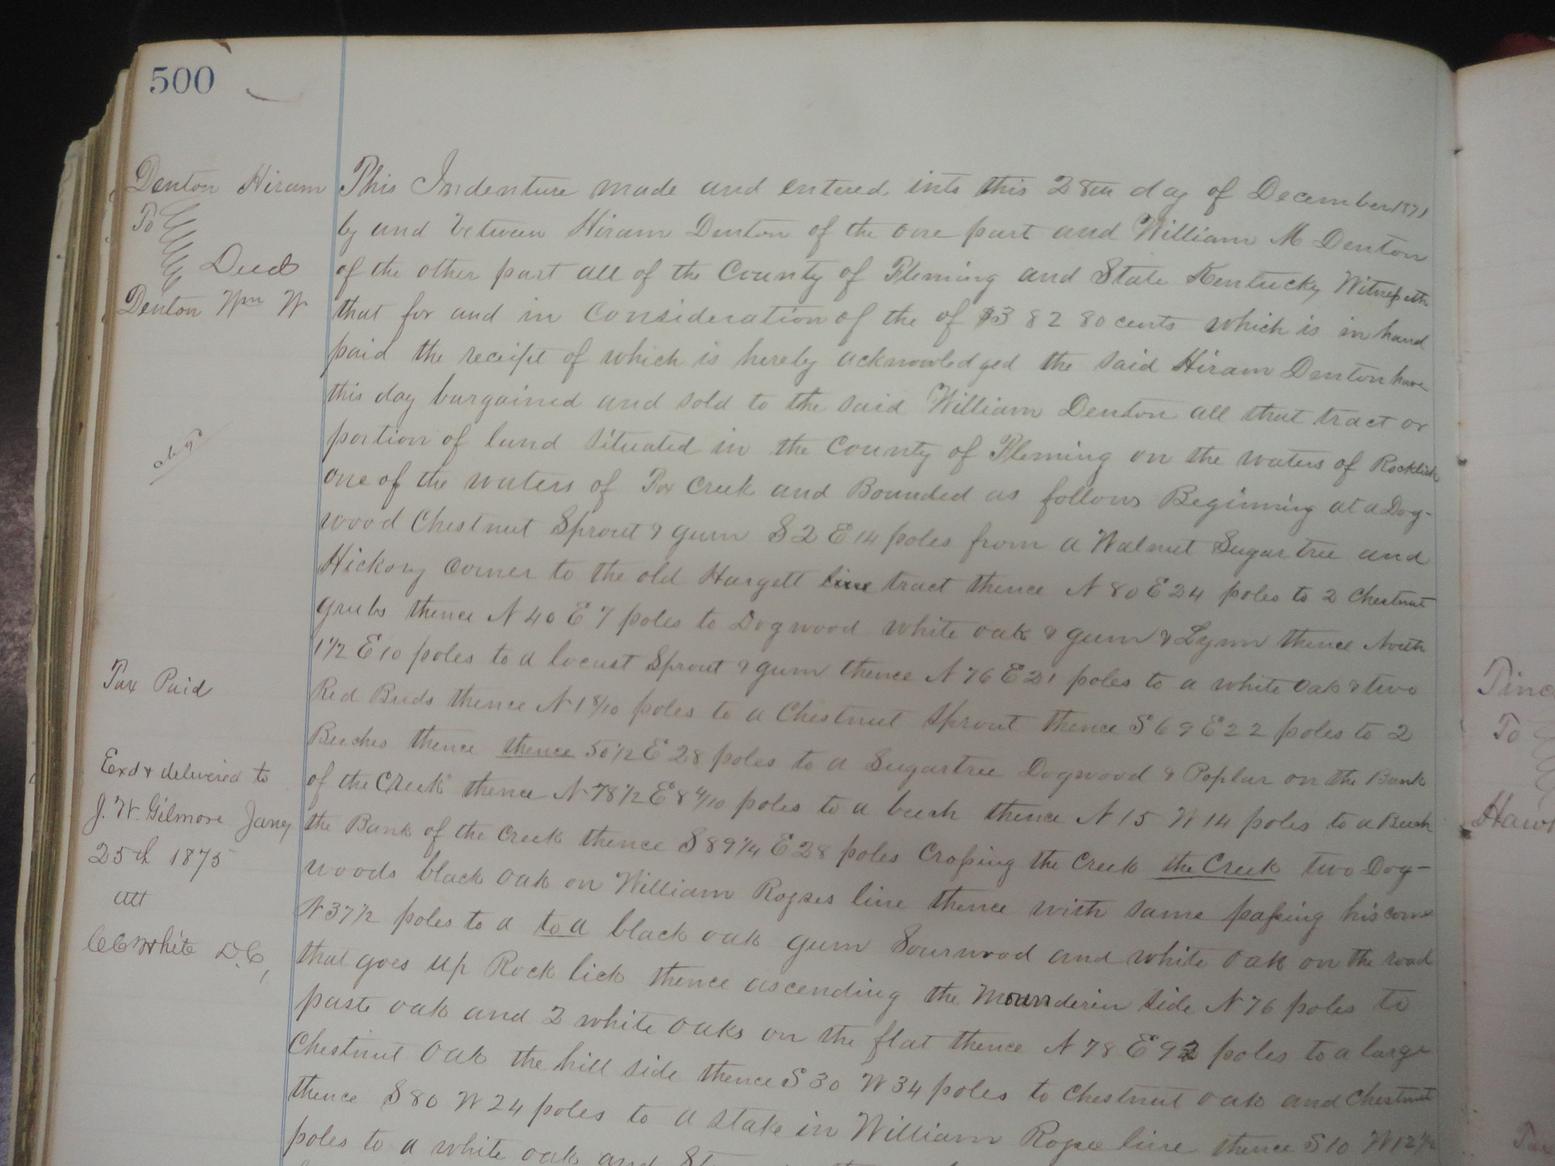 500
Denton Hiram
To
Deed
Denton Wm W
Tax Paid
Exd & delivered to
J. W. Gilmore Jany
25th 1875
att
CC White D.C,
This Indenture made and entered into this 28th day of December 1871
by and between Hiram Denton of the one part and William M Denton
of the other part all of the County of Fleming and State Kentucky Witnesseth
that for and in Consideration of the of $382 80 cents which is in hand
paid the receipt of which is hereby acknowledged the said Hiram Denton have
this day bargained and sold to the said William Denton all that tract or
portion of land situated in the County of Fleming on the waters of Rocklick
one of the waters of Fox Creek and Bounded as follows Beginning at a Dog-
wood Chestnut Sprout & gum S 2 E 14 poles from a Walnut Sugar tree and
Hickory Corner to the old Hargett line tract thence N 80 E 24 poles to 2 Chestnut
grubs thence N 40 E 7 poles to Dogwood white oak & gum & Lynn thence North
1½ E 10 poles to a locust Sprout & gum thence N 76 E 21 poles to a white Oak & two
Red Buds thence N 18/10 poles to a Chestnut Sprout thence S 69 E 22 poles to 2
Beeches thence thence 50½ E 28 poles to a Sugartree Dogwood & Poplar on the Bank
of the Creek thence N 78½ E 8 4/10 poles to a beech thence N 15 W 14 poles to a Beech
the Bank of the Creek thence S 89¼ E 28 poles Crossing the Creek the Creek two Dog-
woods black oak on William Rogses line thence with same passing his corner
N 37½ poles to a to a black oak gum Sourwood and white Oak on the road
that goes up Rock lick thence ascending the Mounderin side N 76 poles to
paste oak and 2 white Oaks on the flat thence N 78 E 92 poles to a large
Chestnut Oak the hill side thence S 30 W 34 poles to Chestnut Oak and Chestnut
thence S 80 W 24 poles to a stake in William Rogse line thence S 10 W 12½
poles to a white oak and
Tinc
To
Hawk